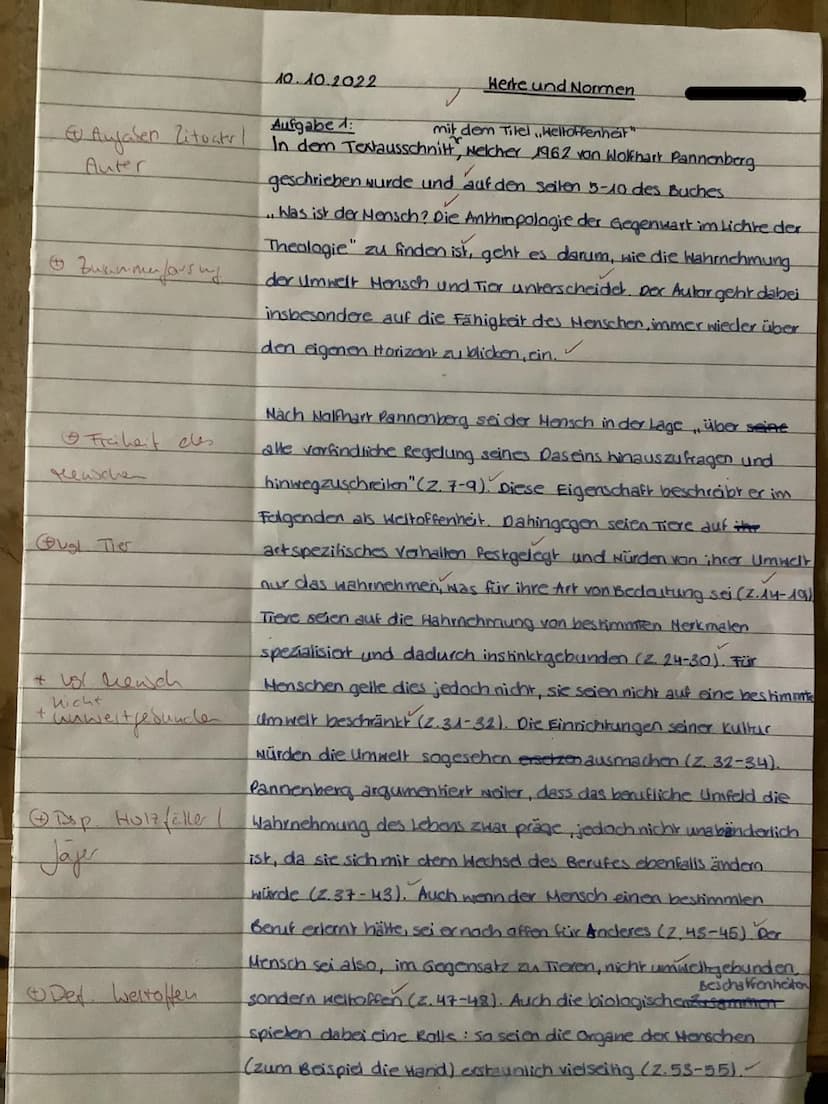 10.10.2022 Werte und Normen
⊕ Angaben Zitat
Autor
Aufgabe 1: mit dem Titel „Weltoffenheit"
In dem Textausschnitt, welcher 1962 von Wolfhart Pannenberg
geschrieben wurde und auf den Seiten 5-10 des Buches
„Was ist der Mensch? Die Anthropologie der Gegenwart im Lichte der
Theologie" zu finden ist, geht es darum, wie die Wahrnehmung
⊕ Zusammenfassung
der Umwelt Mensch und Tier unterscheidet. Der Autor geht dabei
insbesondere auf die Fähigkeit des Menschen, immer wieder über
den eigenen Horizont zu blicken, ein.
Nach Wolfhart Pannenberg sei der Mensch in der Lage „über seine
⊕ Freiheit des
Menschen
alle vorfindliche Regelung seines Daseins hinauszufragen und
hinwegzuschreiten" (Z. 7-9). Diese Eigenschaft beschreibt er im
Folgenden als Weltoffenheit. Dahingegen seien Tiere auf ihr
⊕ vgl. Tier
artspezifisches Verhalten festgelegt und würden von ihrer Umwelt
nur das wahrnehmen, was für ihre Art von Bedeutung sei (Z. 14-19)
Tiere seien auf die Wahrnehmung von bestimmten Merkmalen
spezialisiert und dadurch instinktgebunden (Z. 24-30). Für
+ vgl Mensch
Menschen gelte dies jedoch nicht, sie seien nicht auf eine bestimmte
nicht
+ umweltgebunden
Umwelt beschränkt (Z. 31-32). Die Einrichtungen seiner Kultur
würden die Umwelt sogesehen ersetzen ausmachen (Z. 32-34).
Pannenberg argumentiert weiter, dass das berufliche Umfeld die
⊕ Bsp. Holzfäller /
Jäger
Wahrnehmung des Lebens zwar präge, jedoch nicht unabänderlich
ist, da sie sich mit dem Wechsel des Berufes ebenfalls ändern
würde (Z. 37-43). Auch wenn der Mensch einen bestimmten
Beruf erlernt hätte, sei er noch offen für Anderes (Z. 45-45) Der
Mensch sei also, im Gegensatz zu Tieren, nicht umweltgebunden,
⊕ Def. Weltoffen
sondern weltoffen (Z. 47-48). Auch die biologischen Beschaffenheiten
spielen dabei eine Rolle: so seien die Organe des Menschen
(zum Beispiel die Hand) erstaunlich vielseitig (Z. 53-55).